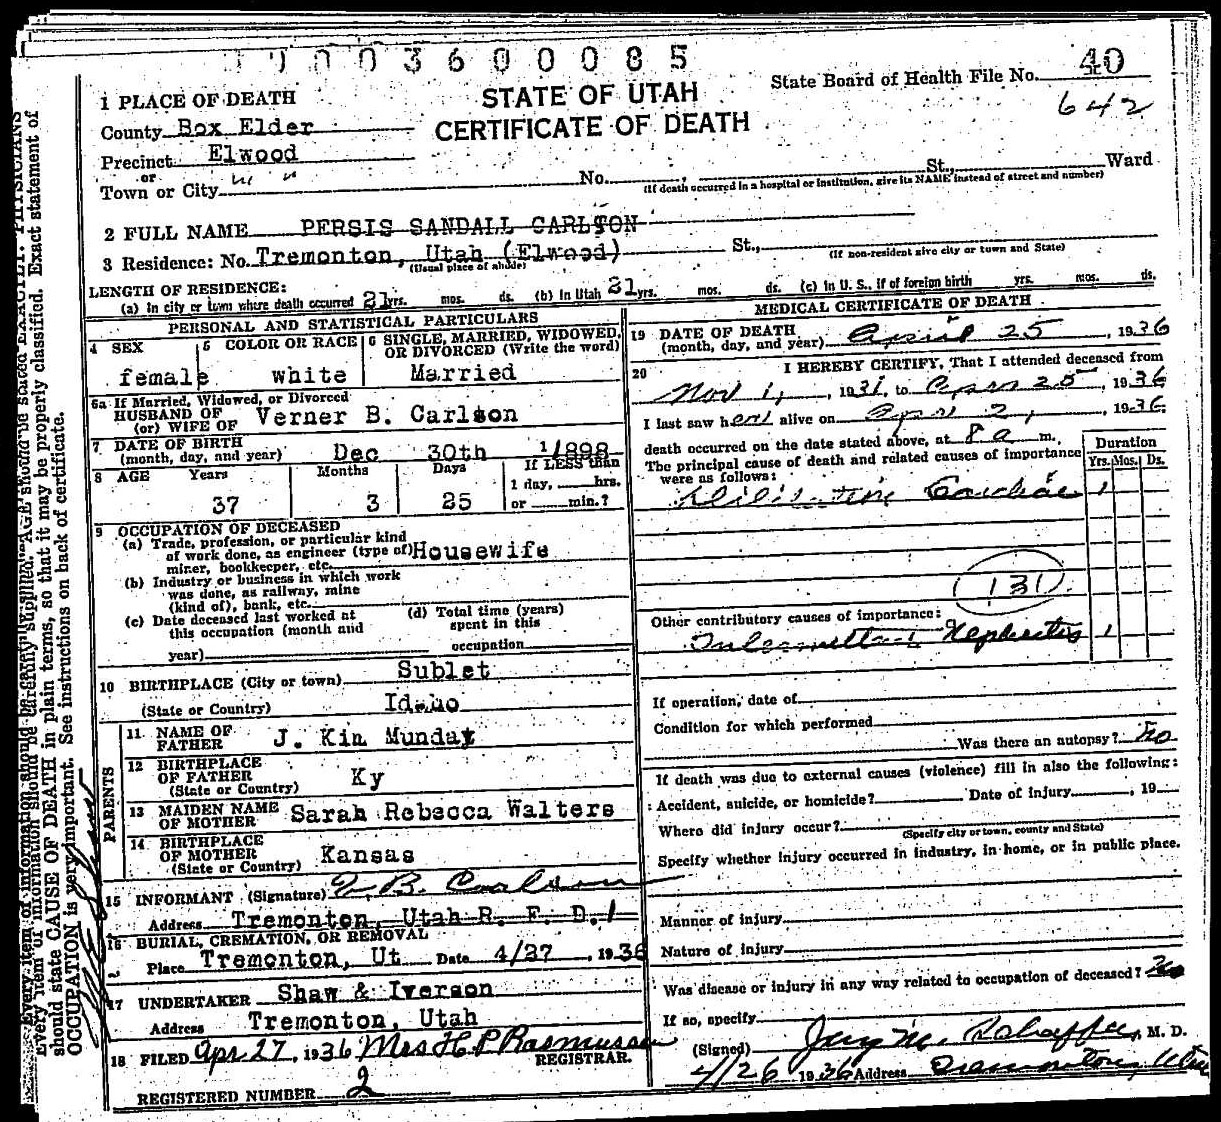 3 6 0 0 0 8 5
State Board of Health File No. 40
STATE OF UTAH
642
CERTIFICATE OF DEATH
1 PLACE OF DEATH
County Box Elder
Precinct Elwood
or
Town or City " " No. St., Ward
(If death occurred in a hospital or institution, give its NAME instead of street and number)
2 FULL NAME PERSIS SANDALL CARLSON
3 Residence: No. Tremonton, Utah (Elwood) St.,
(Usual place of abode) (If non-resident give city or town and State)
LENGTH OF RESIDENCE:
(a) In city or town where death occurred 21 yrs. mos. ds. (b) In Utah 21 yrs. mos. ds. (c) In U. S., if of foreign birth yrs. mos. ds.
PERSONAL AND STATISTICAL PARTICULARS
4 SEX
female
5 COLOR OR RACE
white
6 SINGLE, MARRIED, WIDOWED,
OR DIVORCED (Write the word)
Married
6a If Married, Widowed, or Divorced
HUSBAND OF
(or) WIFE OF Verner B. Carlson
7 DATE OF BIRTH
(month, day, and year) Dec 30th 1898
8 AGE Years Months Days If LESS than
1 day, hrs.
37 3 25 or min.?
9 OCCUPATION OF DECEASED
(a) Trade, profession, or particular kind
of work done, as engineer (type of)
miner, bookkeeper, etc. Housewife
(b) Industry or business in which work
was done, as railway, mine
(kind of), bank, etc.
(c) Date deceased last worked at
this occupation (month and
year)
(d) Total time (years)
spent in this
occupation
10 BIRTHPLACE (City or town) Sublet
(State or Country) Idaho
PARENTS
11 NAME OF
FATHER J. Kin Munday
12 BIRTHPLACE
OF FATHER
(State or Country) Ky
13 MAIDEN NAME
OF MOTHER Sarah Rebecca Walters
14 BIRTHPLACE
OF MOTHER
(State or Country) Kansas
15 INFORMANT (Signature) V. B. Carlson
Address Tremonton, Utah R. F. D. 1
16 BURIAL, CREMATION, OR REMOVAL
Place Tremonton, Ut Date 4/27, 1936
17 UNDERTAKER Shaw & Iverson
Address Tremonton, Utah
18 FILED Apr 27, 1936 Mrs H P Rasmussen
REGISTRAR.
REGISTERED NUMBER 2
MEDICAL CERTIFICATE OF DEATH
19 DATE OF DEATH
(month, day, and year) April 25, 1936
20 I HEREBY CERTIFY, That I attended deceased from
Nov 1, 1931, to Apr 25, 1936
I last saw her alive on Apr 2, 1936
death occurred on the date stated above, at 8 a m.
The principal cause of death and related causes of importance
were as follows:
Duration
Yrs. Mos. Ds.
Cardiac 1
131
Other contributory causes of importance:
Nephritis 1
If operation, date of
Condition for which performed
Was there an autopsy? No
If death was due to external causes (violence) fill in also the following:
Accident, suicide, or homicide? Date of injury , 19
Where did injury occur?
(Specify city or town, county and State)
Specify whether injury occurred in industry, in home, or in public place.
Manner of injury
Nature of injury
Was disease or injury in any way related to occupation of deceased? No
If so, specify
(Signed) M. D.
4/26 1936 Address Tremonton, Utah
should state CAUSE OF DEATH in plain terms, so that it may be properly classified. Exact statement of
OCCUPATION is very important. See instructions on back of certificate.